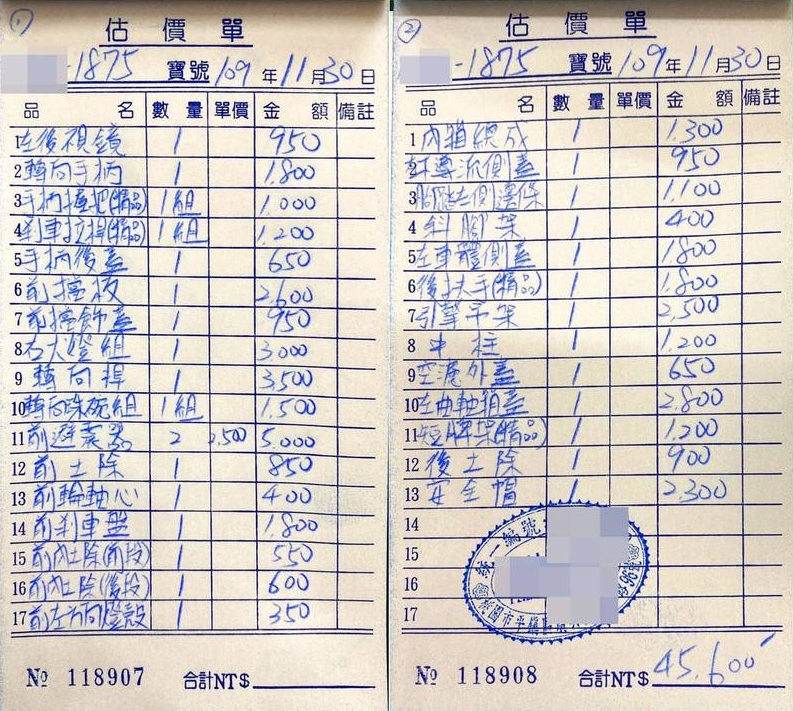 ①
估價單
-1875 寶號 109年11月30日
品名 數量 單價 金額 備註
1 左後視鏡 1 950
2 轉向手柄 1 1.800
3 手柄握把(精品) 1組 1.000
4 剎車拉桿(精品) 1組 1.200
5 手柄後蓋 1 650
6 前擋板 1 2.600
7 前擋飾蓋 1 950
8 右大燈組 1 3.000
9 轉向桿 1 3.500
10 轉向珠碗組 1組 1.500
11 前避震器 2 2.500 5.000
12 前土除 1 850
13 前輪軸心 1 400
14 前剎車盤 1 1.800
15 前內土除(前段) 550
16 前內土除(後段) 1 600
17 前左方向燈殼 1 350
№ 118907 合計NT$
②
估價單
-1875 寶號 109年11月30日
品名 數量 單價 金額 備註
1 內箱總成 1 1.300
2 導流側蓋 1 950
3 腳踏左側邊條 1 1.100
4 斜腳架 1 400
5 左車體側蓋 1 1.800
6 後扶手(精品) 1 1.800
7 引擎吊架 1 2.500
8 中柱 1 1.200
9 空濾外蓋 1 650
10 左曲軸箱蓋 1 2.800
11 短牌架(精品) 1 1.200
12 後土除 1 900
13 安全帽 1 2.300
14
15
16
17
統一編號
桃園市平鎮區
№ 118908 合計NT$ 45.600